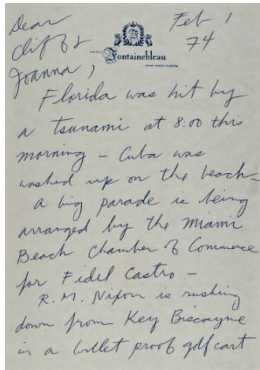 Dear
Cliff &
Joanna,
Feb 1
74
HOTEL
Fontainebleau
Florida was hit by
a tsunami at 8:00 this
morning – Cuba was
washed up on the beach –
A big parade is being
arranged by the Miami
Beach Chamber of Commerce
for Fidel Castro –
R. M. Nixon is rushing
down from Key Biscayne
in a bullet proof golf cart